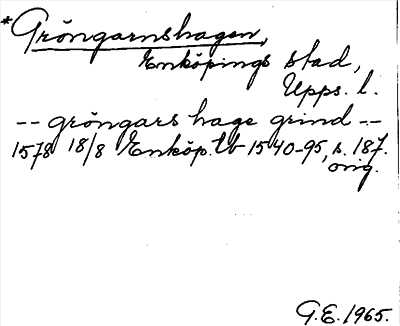 *Gröngarnshagen,
Enköpings stad,
Upps. l.
-- gröngars hage grind --
1578 18/8 Enköp. tb 1540-95, s. 187.
orig.
G.E. 1965.